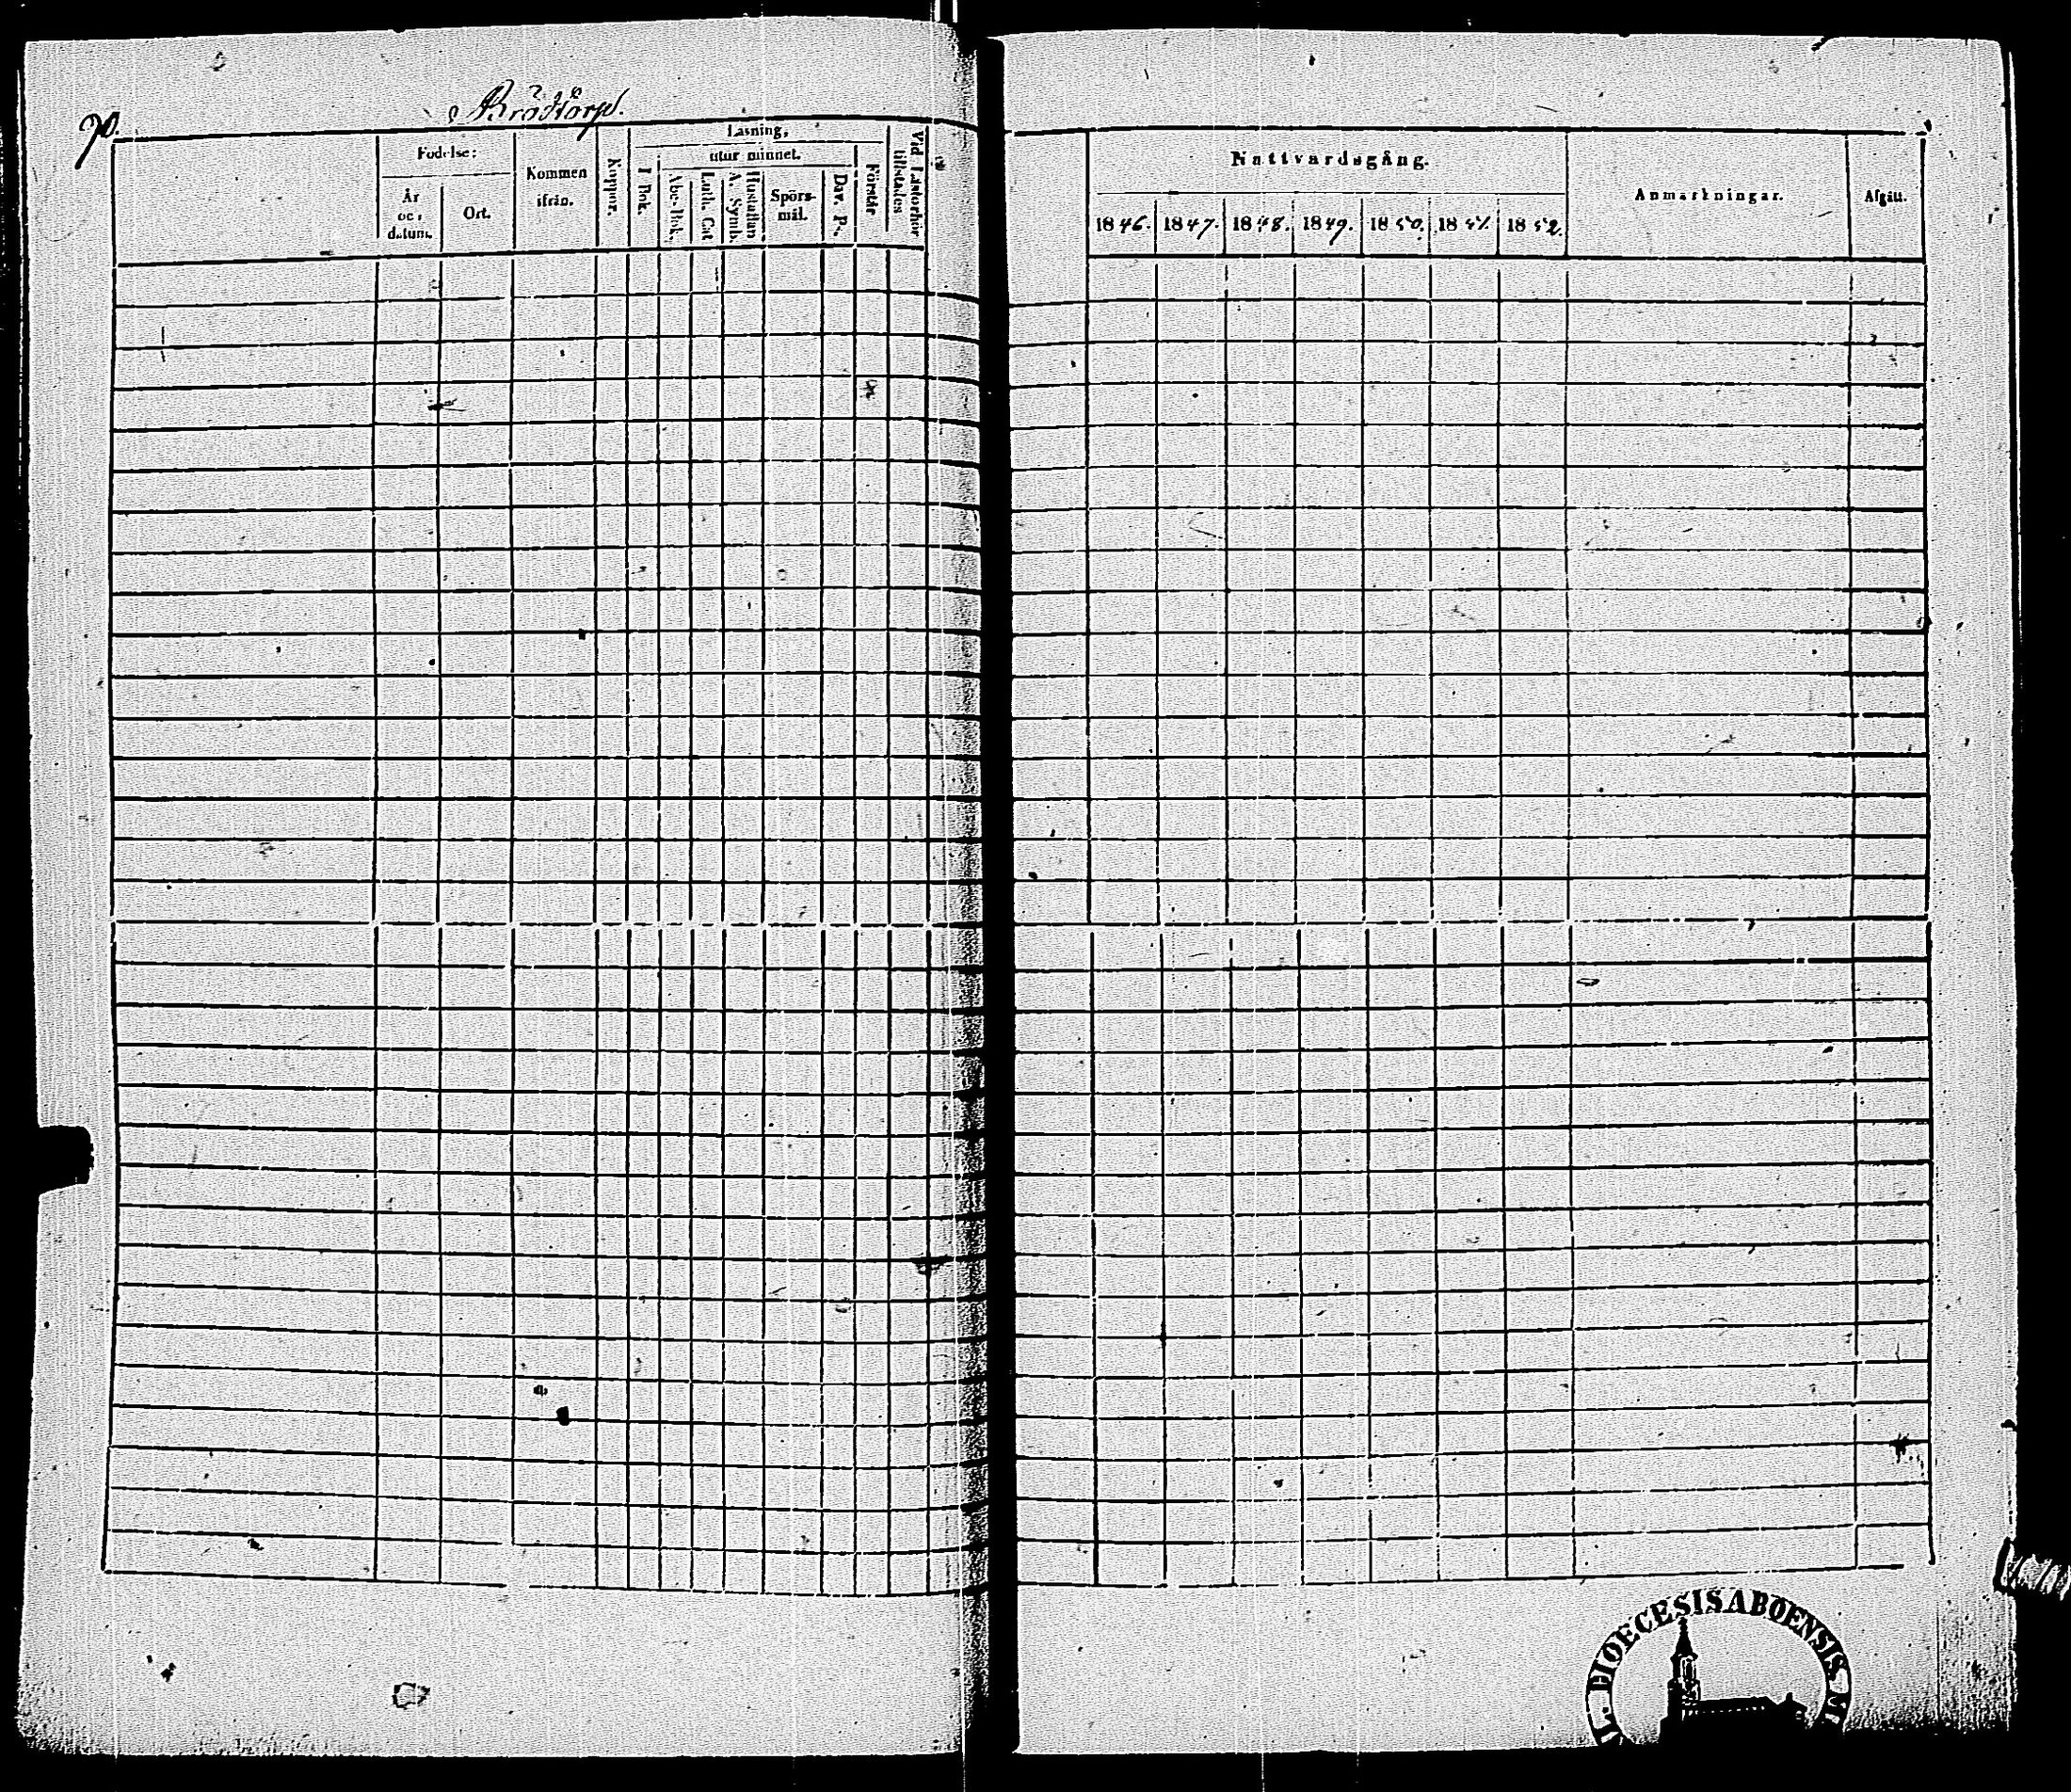 70.
Brödtorp.
Fodelse:
År
och
datum.
Ort.
Kommen
ifrån.
Koppor.
Läsning,
utur minnet.
I Bok.
Abc-Bok.
Luth. Cat
A. Symb.
Hustaflan
Spörs-
mål.
Dav. P.
Förstår
Vid Läsförhör
tillstädes
Nattvardsgång.
1846. 1847. 1848. 1849. 1850. 1851. 1852.
Anmärkningar.
Afgått.
DIOECESIS ABOENSIS